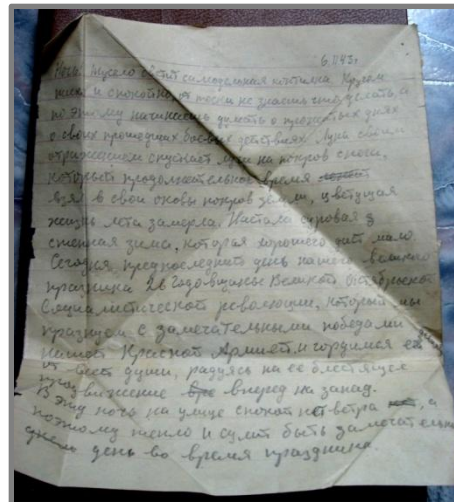 6.043г.
Ночь. Тускло светит самодельная коптилка. Кругом
тихо и спокойно, от тоски не знаешь что делать, а
по этому начинаешь думать о прожитых днях
о своих прошедших боевых действиях. Луна своим
отражением спускает лучи на покров снега,
который продолжительное время
взял в свои оковы покров земли, цветущая
жизнь лета замерла. Настала суровая
снежная зима, которая хорошего даёт мало
Сегодня, предпоследний день нашего великого
праздника 26 годовщины Великой Октябрьской
Социалистической революции, который мы
празднуем с замечательными победами
нашей Красной Армией, и гордимся ею
от всей души, радуясь на её блестящее
продвижение вперед на запад.
В эту ночь на улице спокой нет ветра, а
поэтому тепло и сулит быть замечательный
день во время праздника.